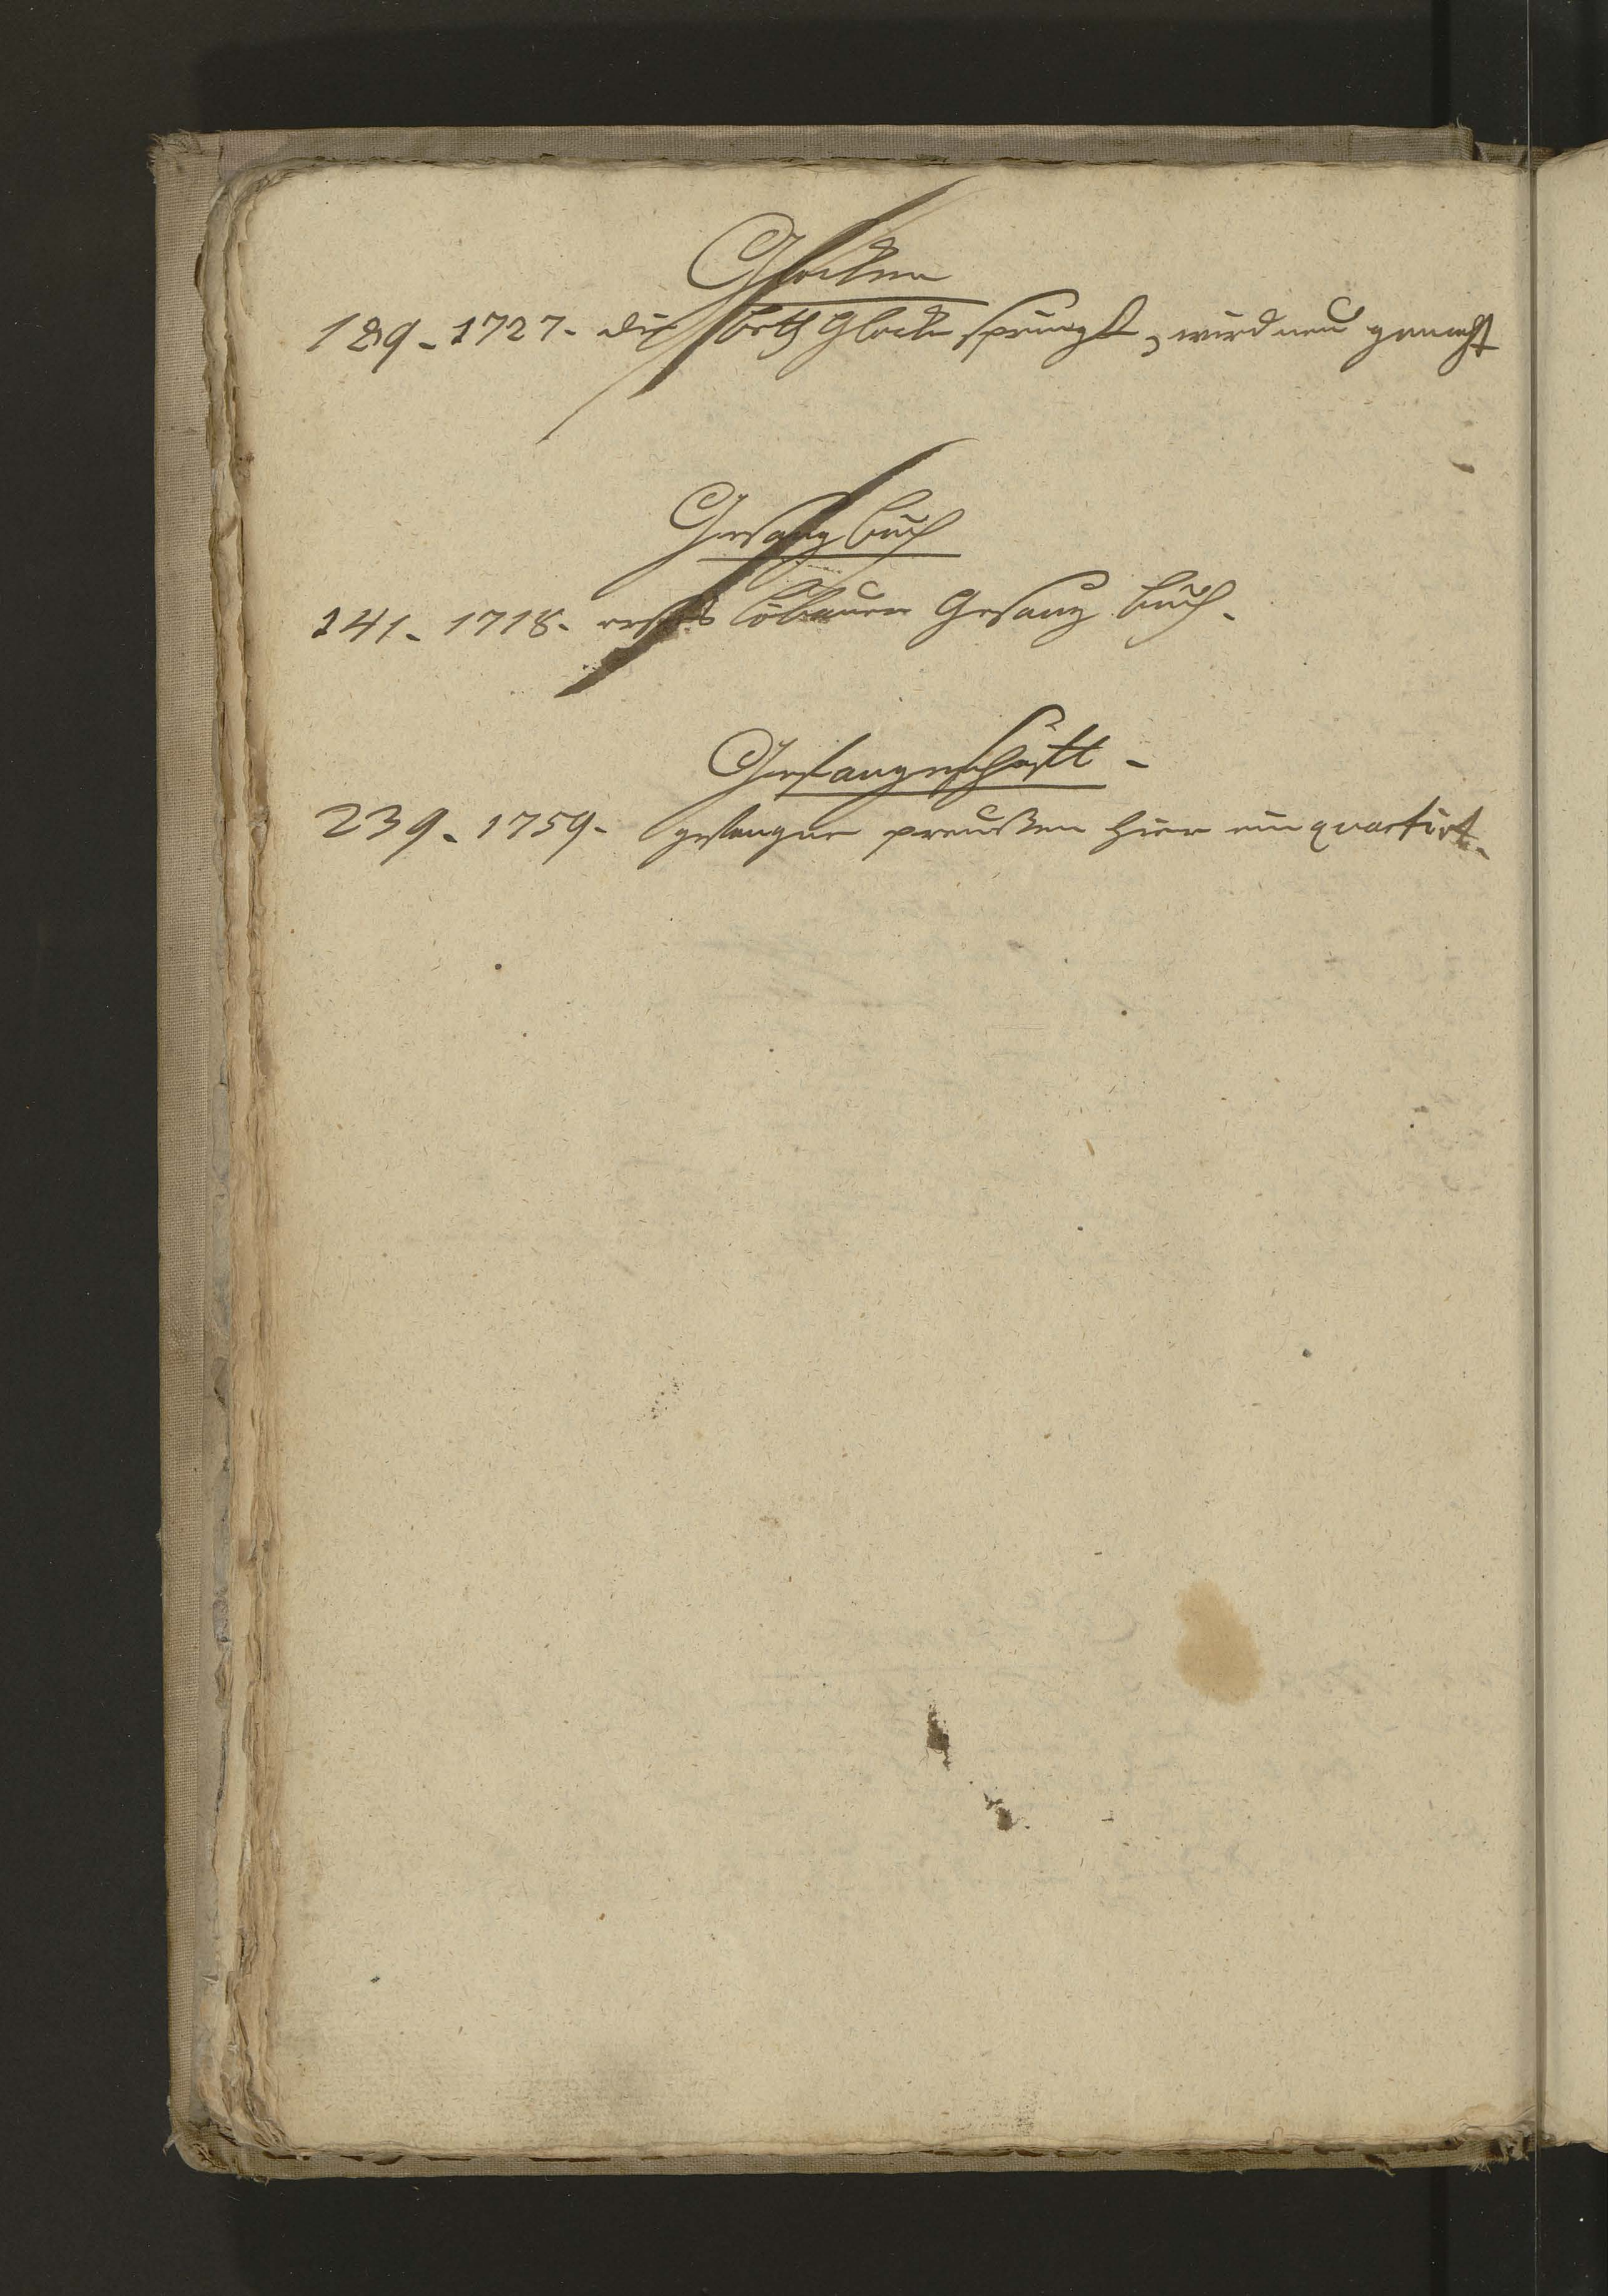 Glocken
189 - 1727 - die Beth Glocke springt, wird neu gemacht
Gesangbuch
241 - 1718 - erstes Löbauer Gesang buch -
Gefangenschaft -
239 - 1759 - gefangne preußen hier einquartirt -